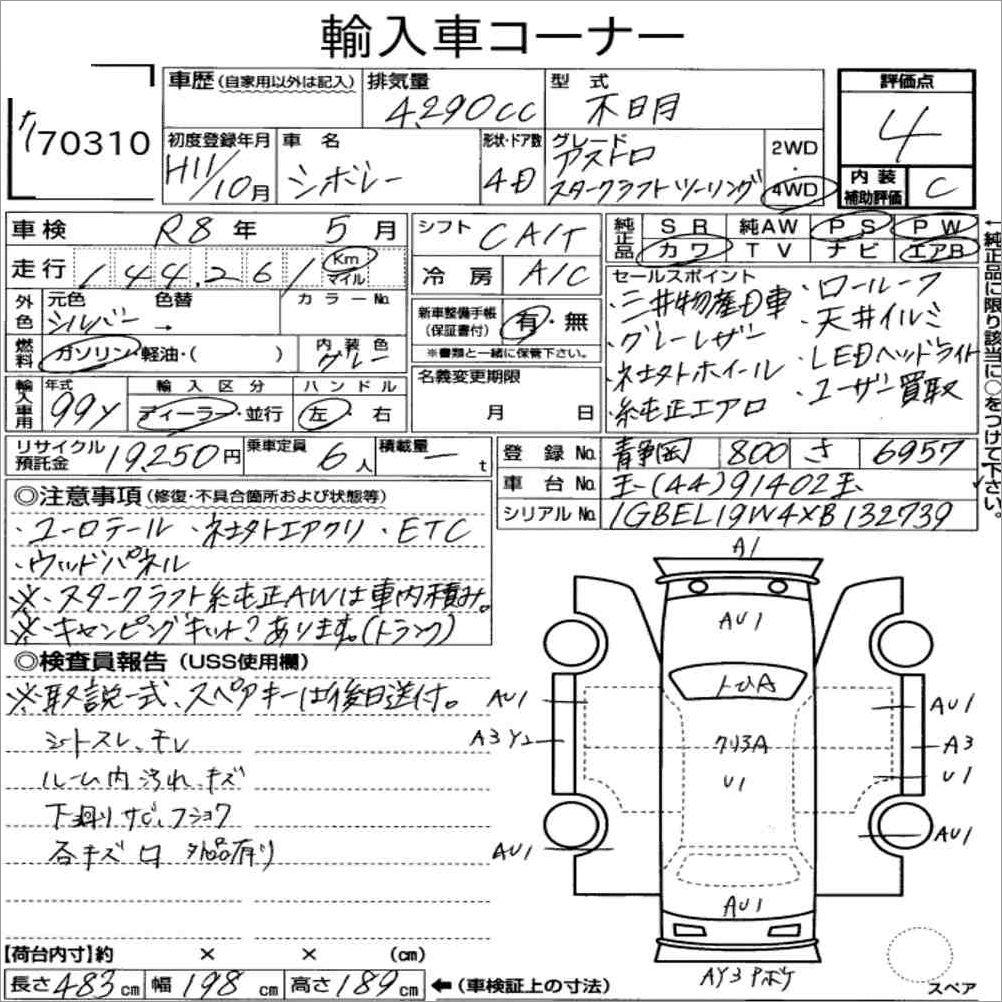 輸入車コーナー
70310
車歴(自家用以外は記入)
排気量
4,290cc
型式
不明
評価点
4
初度登録年月
H11/10月
車名
シボレー
形状・ドア数
4D
グレード
アストロ
スタークラフトツーリング
2WD
・
4WD
内装
補助評価
C
車検
R8年 5月
シフト
CA/T
純正品
SR 純AW PS PW
カワ TV ナビ エアB
走行
144,261
Km
マイル
冷房
A/C
セールスポイント
・三井物産D車
・グレーレザー
・社外ホイール
・純正エアロ
・ロールーフ
・天井イルミ
・LEDヘッドライト
・ユーザー買取
外色
元色 色替
シルバー→
カラーNo.
新車整備手帳
(保証書付)
有・無
※書類と一緒に保管下さい。
燃料
ガソリン・軽油・( )
内装色
グレー
名義変更期限
月 日
輸入車用
年式
99y
輸入区分
ディーラー・並行
ハンドル
左・右
リサイクル
預託金
19,250円
乗車定員
6人
積載量
ー t
登録No.
静岡 800 さ 6957
車台No.
(44)91402
シリアルNo.
1GBEL19W4XB132739
←純正品に限り該当に○をつけて下さい。
◎注意事項(修復・不具合箇所および状態等)
・ユーロテール ・社外エアクリ ・ETC
・ウッドパネル
※・スタークラフト純正AWは車内積み。
※・キャンピングキット?あります。(トランク)
◎検査員報告(USS使用欄)
※取説一式、スペアキーは後日送付。
シートスレ、チレ
ルーム内汚れ、キズ
下廻りサビ、フショク
各キズ凹 外品有り
A1
AU1
トビA
AU1
A3 Y2
クリ3A
U1
AU1
A3
U1
AU1
AU1
AU1
AY3 Pボケ
スペア
【荷台内寸】約 × × (cm)
長さ483cm 幅198cm 高さ189cm ←(車検証上の寸法)